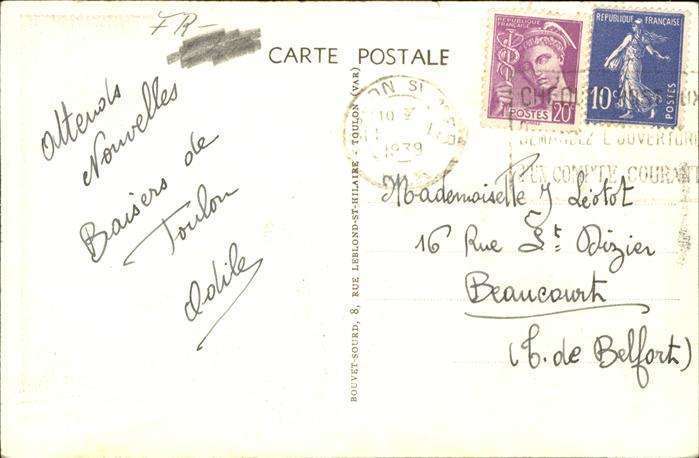 FR-
CARTE POSTALE
attends
Nouvelles
Baisers de
Toulon
Odile
BOUVET-SOURD, 8, RUE LEBLOND-ST-HILAIRE - TOULON (VAR)
RÉPUBLIQUE FRANÇAISE
POSTES 20c
REPUBLIQUE FRANÇAISE
10c
POSTES
10
1939
L'OUVERTURE
D'UN COMPTE COURANT
Mademoiselle J Léotot
16 Rue St Dizier
Beaucourt
(T. de Belfort)